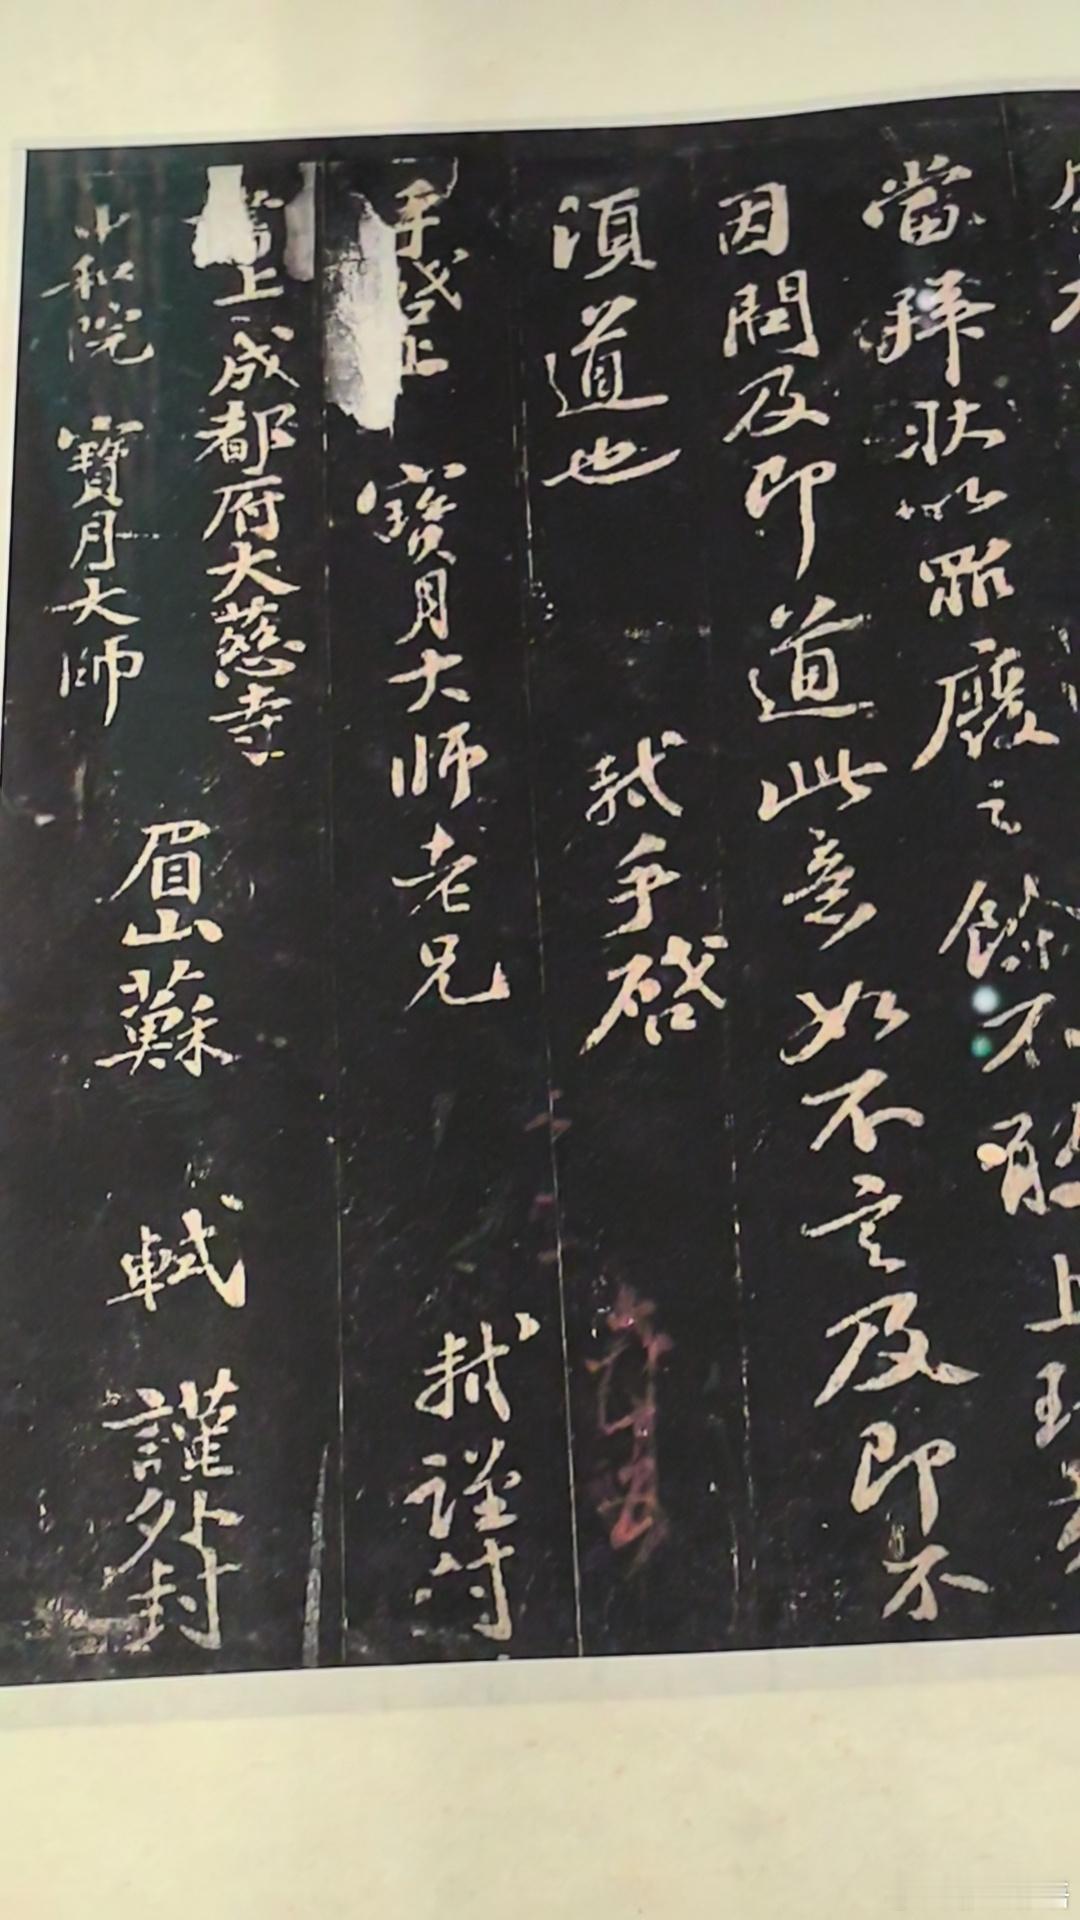 當拜狀以罪廢之餘不敢上
因問及即道此意如不言及即不
須道也
軾手啓
手啓上 寶月大師老兄
軾謹封
上成都府大慈寺
院 寶月大師
眉山蘇 軾 謹外封